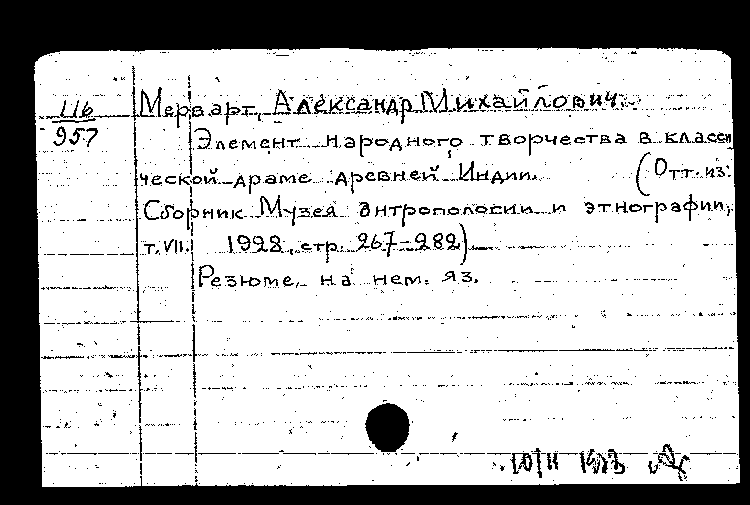 116
957
Мерварт, Александр Михайлович.
Элемент народного творчества в класси
ческой драме древней Индии. (Отт. из:
Сборник Музея антропологии и этнографии,
т. VII. 1928, стр. 267-282)
Резюме на нем. яз.
10/II